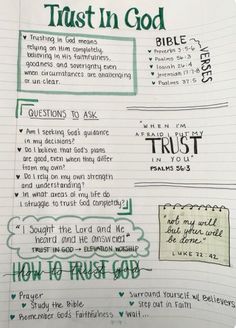 Trust In God
• Trusting in God means
relying on Him completely,
believing in His faithfulness,
goodness, and sovereignty even
when circumstances are challenging
or un clear.
BIBLE VERSES
♥ Proverbs 3:5-6
♥ Psalms 56:3
♥ Isaiah 26:4
♥ Jeremiah 17:7-8
♥ Psalms 37:5
QUESTIONS TO ASK
♥ Am I seeking God's guidance
in my decisions?
♥ Do I believe that God's plans
are good, even when they differ
from my own?
♥ Do I rely on my own strength
and understanding?
♥ In what areas of my life do
I struggle to trust God completely?
"WHEN I'M
AFRAID I PUT MY
TRUST
IN YOU"
PSALMS 56:3
"I Sought the Lord and He
heard and He answered"
TRUST IN GOD → ELEVATION WORSHIP
"not my will
but your will
be done."
LUKE 22:42
HOW TO TRUST GOD
♥ Prayer
♥ Study the Bible
♥ Remember God's Faithfulness
♥ Surround Yourself w/ Believers
♥ Step out in Faith
♥ Wait...